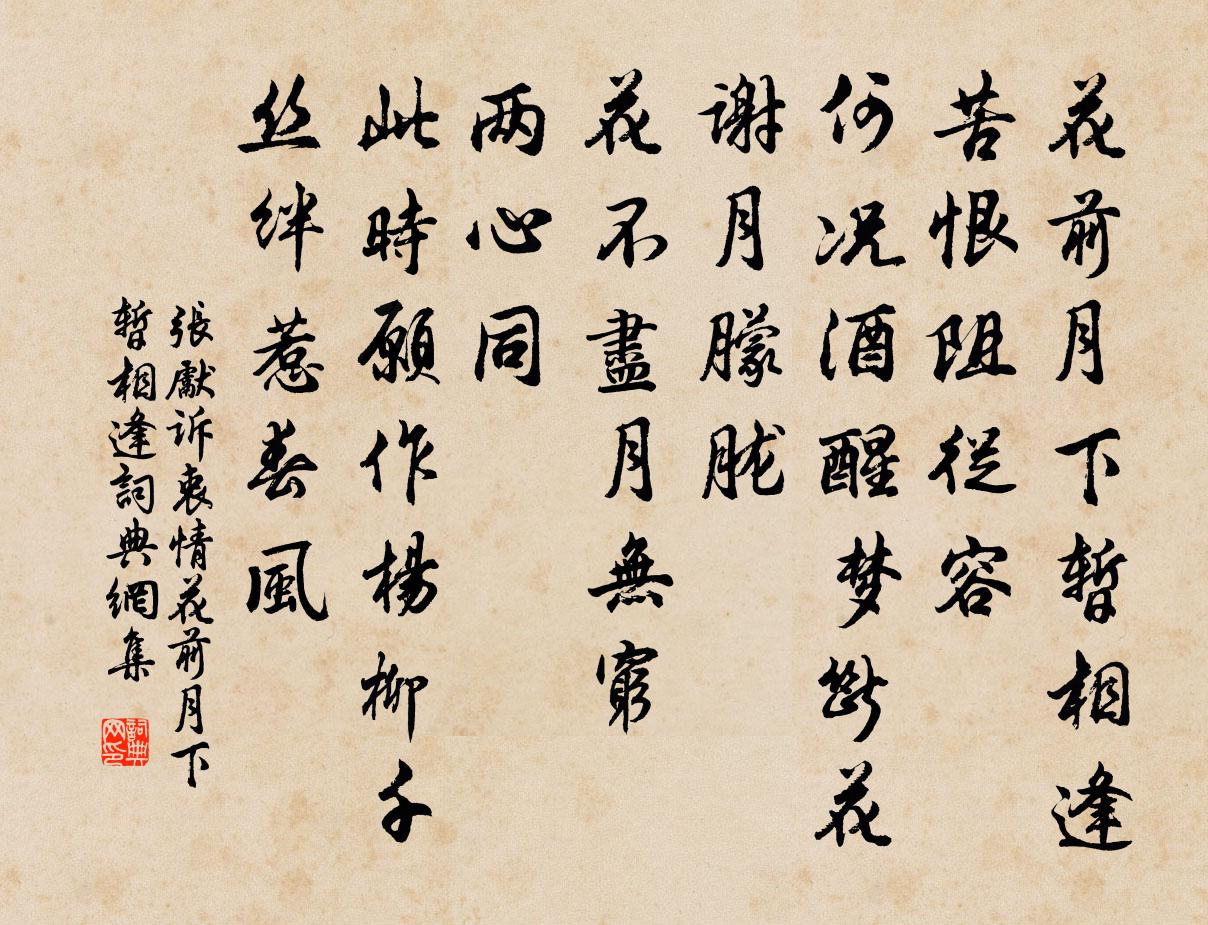 花前月下暫相逢
苦恨阻從容
何况酒醒梦斷花
謝月朦胧
花不盡月無窮
两心同
此時願作楊柳千
丝絆惹春風
張獻訴衷情花前月下
暫相逢詞典網集
詞典网印